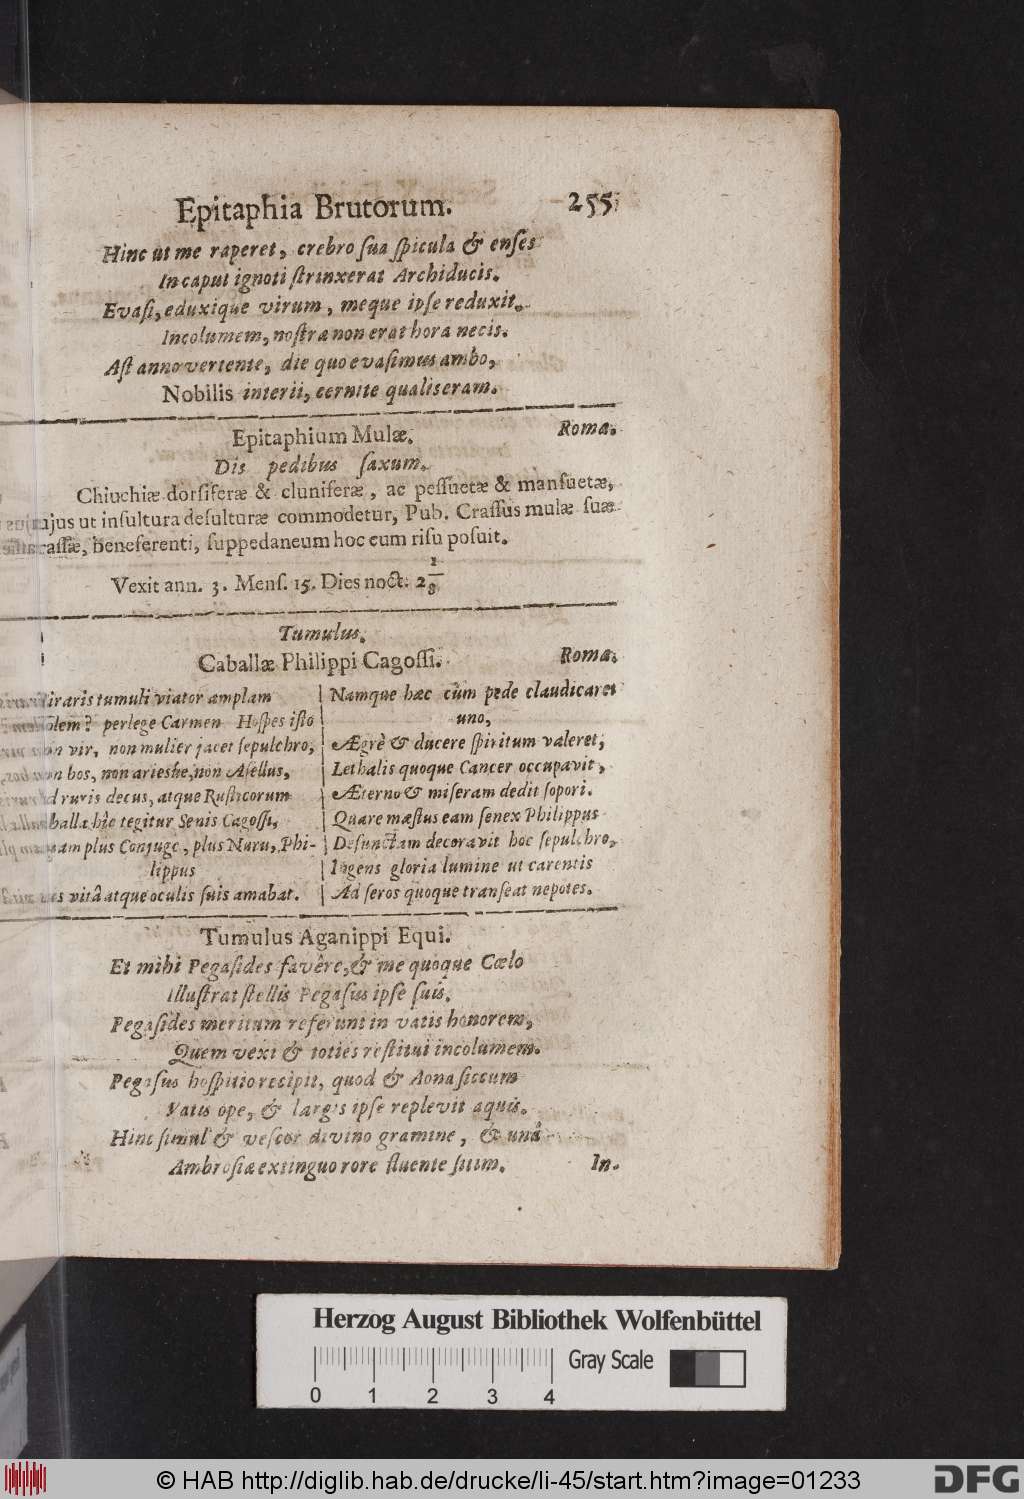 Epitaphia Brutorum. 255
Hinc ut me raperet, crebro sua spicula & enses
In caput ignoti strinxerat Archiducis.
Evasi, eduxique virum, meque ipse reduxit.
Incolumem, nostra non erat hora necis.
Ast anno vertente, die quo evasimus ambo,
Nobilis interii, cernite qualis eram.
Epitaphium Mulæ. Roma.
Dis pedibus saxum.
Chiuchiæ dorsiferæ & cluniferæ, ac pessuetæ & mansuetæ,
ujus ut insultura desulturæ commodetur, Pub. Crassus mulæ suæ
rassæ, beneferenti, suppedaneum hoc cum risu posuit.
Vexit ann. 3. Mens. 15. Dies noct. 2 1/8
Tumulus.
Caballæ Philippi Cagossi. Roma.
iraris tumuli viator amplam
olem? perlege Carmen Hospes isto
on vir, non mulier jacet sepulchro,
on bos, non aries he, non Asellus,
d ruris decus, atque Rusticorum
balla hîc tegitur Senis Cagossi,
uam plus Conjuge, plus Nuru, Phi-
lippus
es vitâ atque oculis suis amabat.
Namque hæc cùm pede claudicaret
uno,
Ægrè & ducere spiritum valeret,
Lethalis quoque Cancer occupavit,
Æterno & miseram dedit sopori.
Quare mæstus eam senex Philippus
Defunctam decoravit hoc sepulchro,
Ingens gloria lumine ut carentis
Ad seros quoque transeat nepotes.
Tumulus Aganippi Equi.
Et mihi Pegasides favêre, & me quoque Cœlo
Illustrat stellis Pegasus ipse suis.
Pegasides meritum referunt in vatis honorem,
Quem vexi & toties restitui incolumem.
Pegasus hospitio recipit, quod & Aona siccum
Vatis ope, & largis ipse replevit aquis.
Hinc simul & vescor divino gramine, & unâ
Ambrosiæ extinguo rore fluente sitim. In-
Herzog August Bibliothek Wolfenbüttel
Gray Scale
0 1 2 3 4
© HAB http://diglib.hab.de/drucke/li-45/start.htm?image=01233
DFG